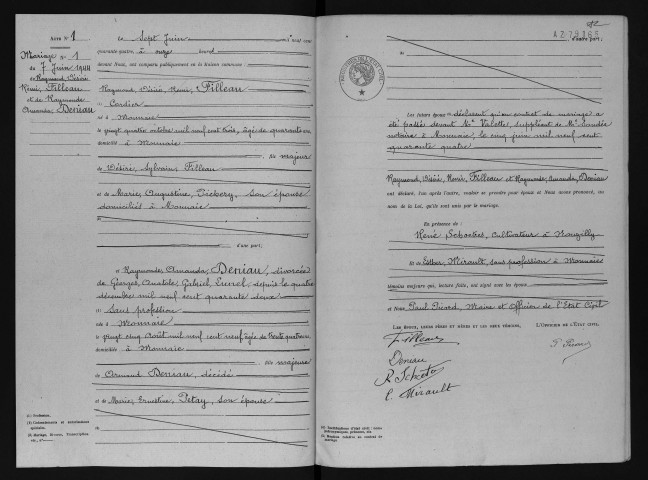 Acte N° 1
Mariage N° 1
du 7 Juin 1944
de Raymond, Désiré,
René, Filleau
et de Raymonde,
Amanda, Deniau
Le Sept Juin mil neuf cent
quarante-quatre, à onze heures
devant Nous, ont comparu publiquement en la Maison commune
Raymond, Désiré, René, Filleau
(1) Cordier
né à Monnaie
le vingt quatre octobre mil neuf cent trois, âgé de quarante ans
domicilié à Monnaie
fils majeur
de Désiré, Sylvain, Filleau
et de Marie, Augustine, son épouse
domiciliés à Monnaie
d'une part;
et Raymonde, Amanda, Deniau, divorcée
de Georges, Anatole, Gabriel, depuis le quatre
décembre mil neuf cent quarante deux
(1) Sans profession
née à Monnaie
le vingt cinq Août mil neuf cent neuf, âgée de trente quatre ans
domiciliée à Monnaie
fille majeure
de Armand Deniau, décédé
et de Marie, Ernestine, son épouse
(1) Profession.
d'autre part.
Les futurs époux déclarent qu'un contrat de mariage a
été passé devant Me suppléant de Me
notaire à Monnaie, le cinq juin mil neuf cent
quarante quatre
Raymond, Désiré, René, Filleau et Raymonde, Amanda, Deniau
ont déclaré, l'un après l'autre, vouloir se prendre pour époux et Nous avons prononcé, au
nom de la Loi, qu'ils sont unis par le mariage.
En présence de
René cultivateur à Nouzilly
Et de Esther, Mirault, sans profession à Monnaie
témoins majeurs qui, lecture faite, ont signé avec les époux
et Nous Paul Maire et Officier de l'Etat Civil
L'Officier de l'État civil,
Filleau
Deniau
E. Mirault